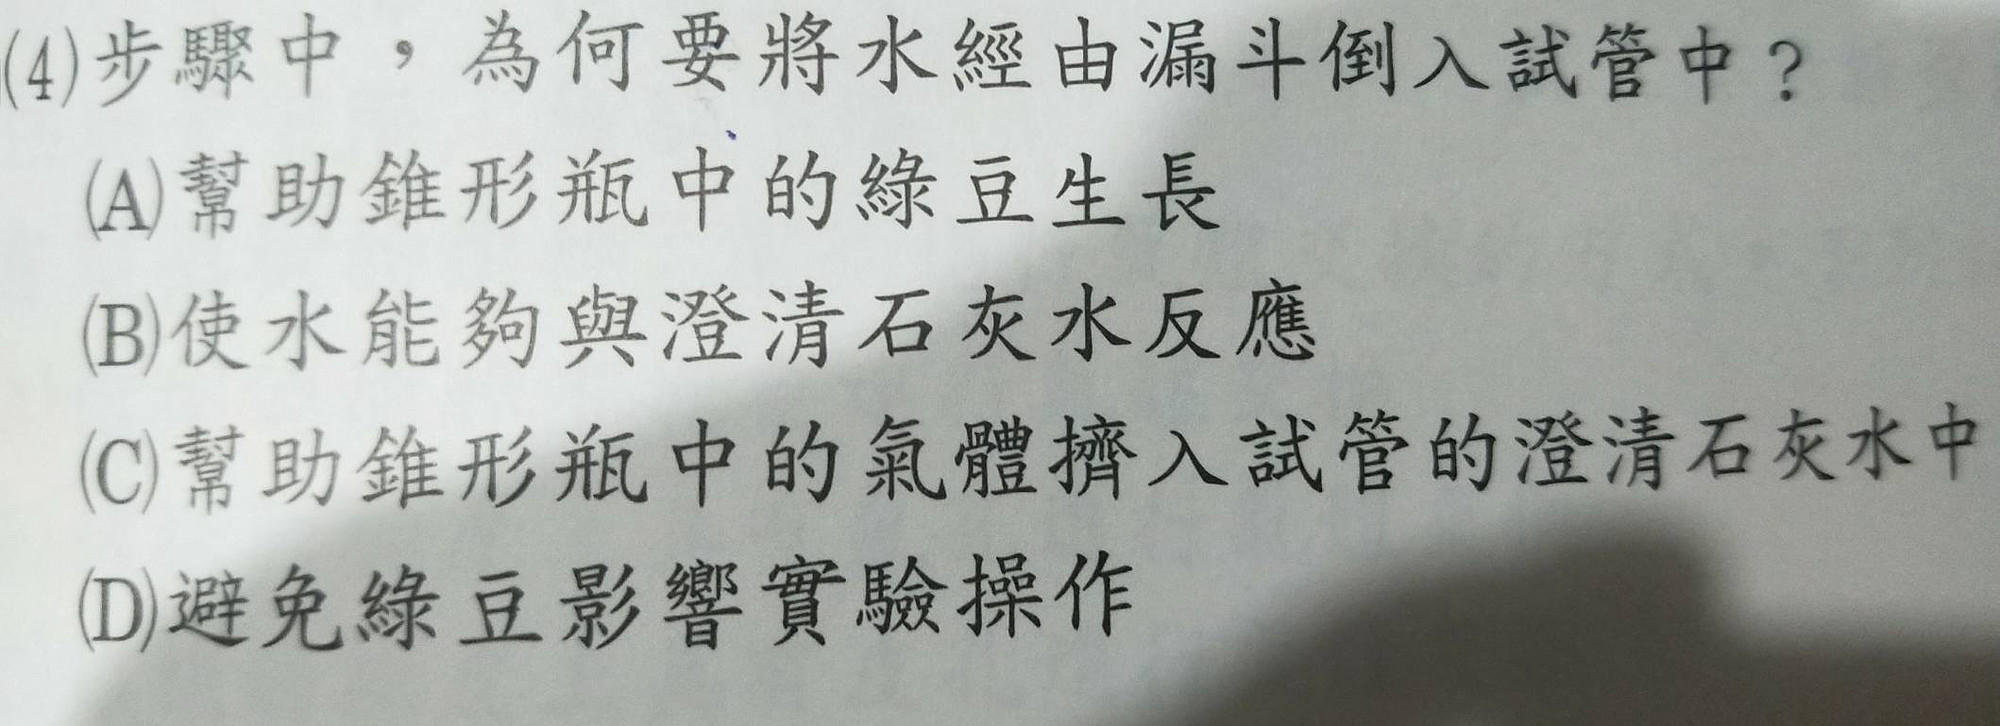 (4)步驟中，為何要將水經由漏斗倒入試管中？
(A)幫助錐形瓶中的綠豆生長
(B)使水能夠與澄清石灰水反應
(C)幫助錐形瓶中的氣體擠入試管的澄清石灰水中
(D)避免綠豆影響實驗操作